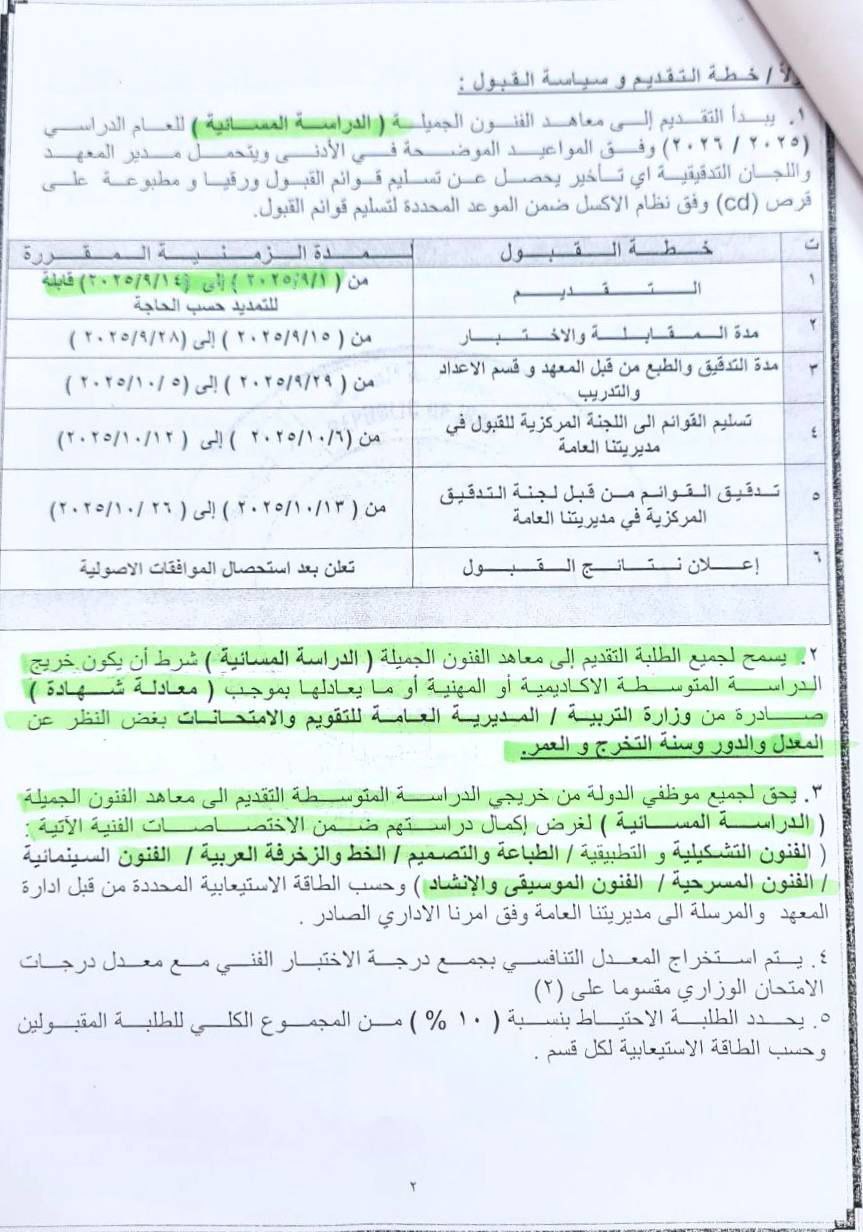 أولاً / خطة التقديم و سياسة القبول :
١. يبدأ التقديم إلى معاهد الفنون الجميلة ( الدراسة المسائية ) للعام الدراسي
(٢٠٢٥ / ٢٠٢٦) وفق المواعيد الموضحة في الأدنى ويتحمل مدير المعهد
واللجان التدقيقية اي تأخير يحصل عن تسليم قوائم القبول ورقيا و مطبوعة على
قرص (cd) وفق نظام الاكسل ضمن الموعد المحددة لتسليم قوائم القبول.
ت خطة القبول المدة الزمنية المقررة
١ التقديم من ( ٢٠٢٥/٩/١ ) إلى (٢٠٢٥/٩/١٤) قابلة
للتمديد حسب الحاجة
٢ مدة المقابلة والاختبار من ( ٢٠٢٥/٩/١٥ ) إلى (٢٠٢٥/٩/٢٨ )
٣ مدة التدقيق والطبع من قبل المعهد و قسم الاعداد من ( ٢٠٢٥/٩/٢٩ ) إلى (٢٠٢٥/١٠/٥ )
والتدريب
٤ تسليم القوائم الى اللجنة المركزية للقبول في من (٢٠٢٥/١٠/٦ ) إلى ( ٢٠٢٥/١٠/١٢)
مديريتنا العامة
٥ تدقيق القوائم من قبل لجنة التدقيق من ( ٢٠٢٥/١٠/١٣ ) إلى ( ٢٠٢٥/١٠/٢٦)
المركزية في مديريتنا العامة
٦ إعلان نتائج القبول تعلن بعد استحصال الموافقات الاصولية
٢. يسمح لجميع الطلبة التقديم إلى معاهد الفنون الجميلة ( الدراسة المسائية ) شرط أن يكون خريج
الدراسة المتوسطة الاكاديمية أو المهنية أو ما يعادلها بموجب ( معادلة شهادة )
صادرة من وزارة التربية / المديرية العامة للتقويم والامتحانات بغض النظر عن
المعدل والدور وسنة التخرج و العمر.
٣. يحق لجميع موظفي الدولة من خريجي الدراسة المتوسطة التقديم الى معاهد الفنون الجميلة
( الدراسة المسائية ) لغرض إكمال دراستهم ضمن الاختصاصات الفنية الآتية :
( الفنون التشكيلية و التطبيقية / الطباعة والتصميم / الخط والزخرفة العربية / الفنون السينمائية
/ الفنون المسرحية / الفنون الموسيقى والإنشاد ) وحسب الطاقة الاستيعابية المحددة من قبل ادارة
المعهد والمرسلة الى مديريتنا العامة وفق امرنا الاداري الصادر .
٤. يتم استخراج المعدل التنافسي بجمع درجة الاختبار الفني مع معدل درجات
الامتحان الوزاري مقسوما على (٢)
٥. يحدد الطلبة الاحتياط بنسبة ( ١٠ % ) من المجموع الكلي للطلبة المقبولين
وحسب الطاقة الاستيعابية لكل قسم .
٢